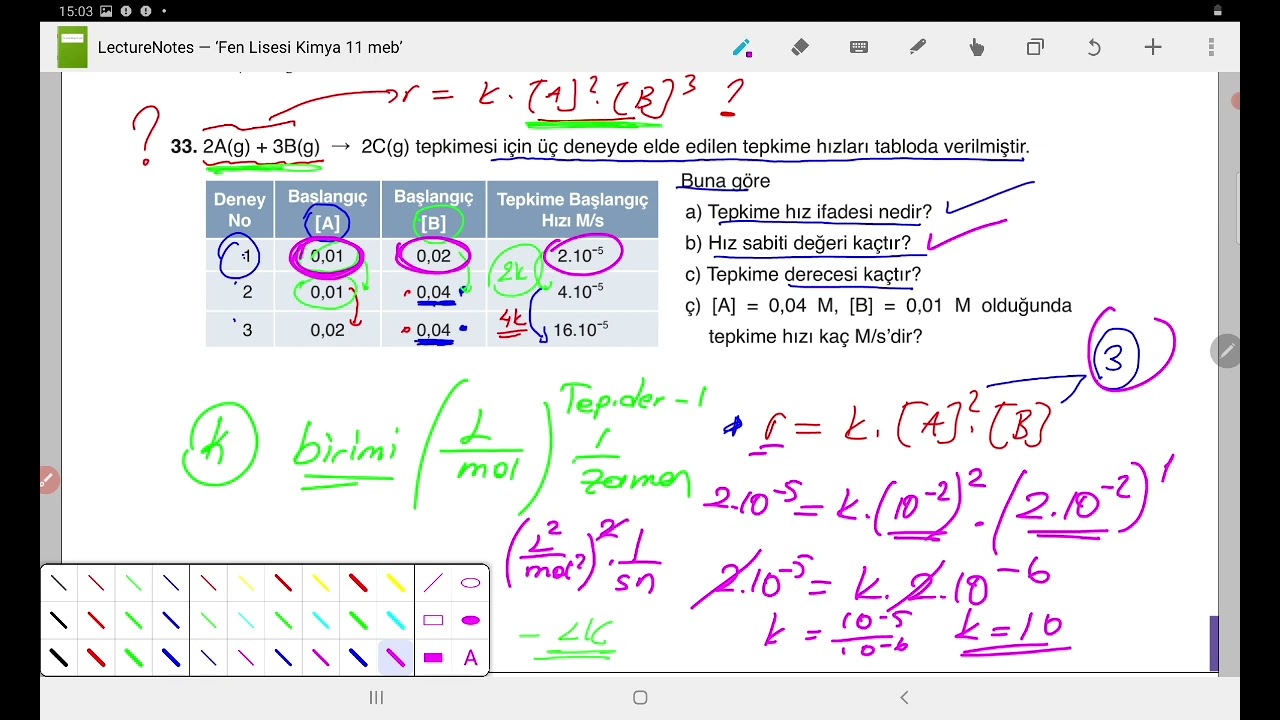 15:03
LectureNotes — ‘Fen Lisesi Kimya 11 meb’
? r = k · [A]² · [B]³ ?
33. 2A(g) + 3B(g) → 2C(g) tepkimesi için üç deneyde elde edilen tepkime hızları tabloda verilmiştir.
Deney No Başlangıç [A] Başlangıç [B] Tepkime Başlangıç Hızı M/s
1 0,01 0,02 2.10⁻⁵
2k
2 0,01 0,04 4.10⁻⁵
4k
3 0,02 0,04 16.10⁻⁵
Buna göre
a) Tepkime hız ifadesi nedir?
b) Hız sabiti değeri kaçtır?
c) Tepkime derecesi kaçtır?
ç) [A] = 0,04 M, [B] = 0,01 M olduğunda
tepkime hızı kaç M/s’dir?
3
k birimi (L/mol)^Tep.der-1 1/zaman
(L²/mol²)² · 1/sn
r = k · [A]² · [B]
2.10⁻⁵ = k · (10⁻²)² · (2.10⁻²)¹
2.10⁻⁵ = k · 2.10⁻⁶
k = 10⁻⁵/10⁻⁶ k = 10
A